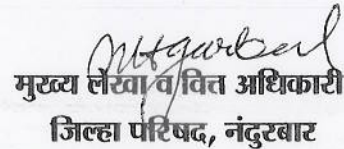 मुख्य लेखा व वित्त अधिकारी
जिल्हा परिषद, नंदुरबार